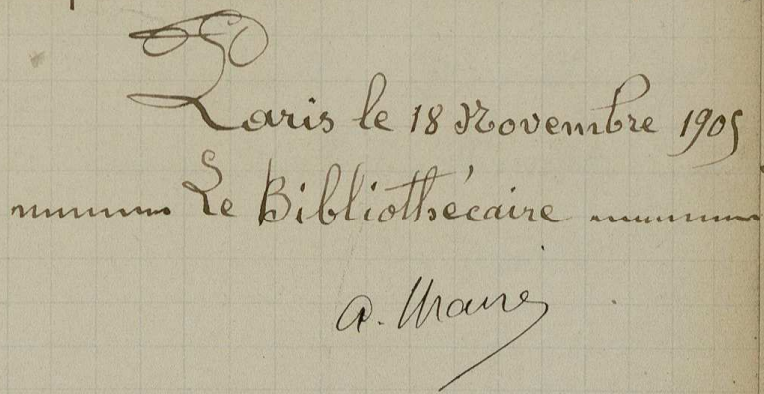 Paris le 18 Novembre 1905
Le Bibliothécaire
A. Maire